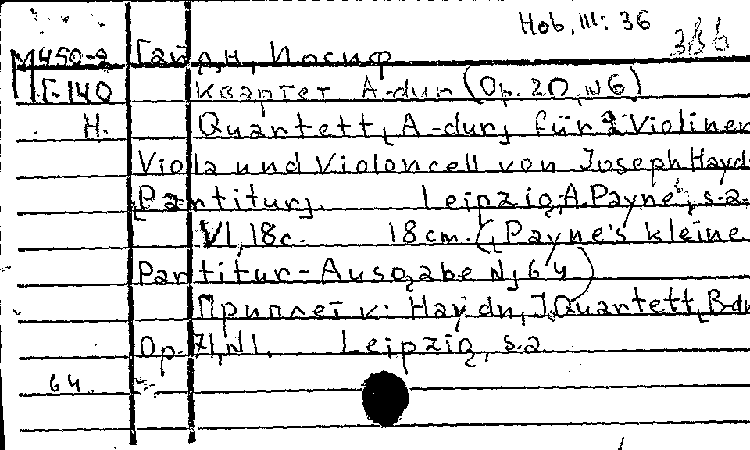 Hob. III: 36
386
М450-2 Гайдн, Иосиф
Г-140 Квартет A-dur (Op. 20, N6)
H. Quartett, A-dur, für 2 Violinen
Viola und Violoncell von Joseph Haydn
[Partitur]. Leipzig, A. Payne, s.a.
VI, 18c. 18cm. (Payne's kleine
Partitur-Ausgabe N, 64)
Приплет к: Haydn, J. Quartett, B-du
Op. 71, N1. Leipzig, s.a.
64.